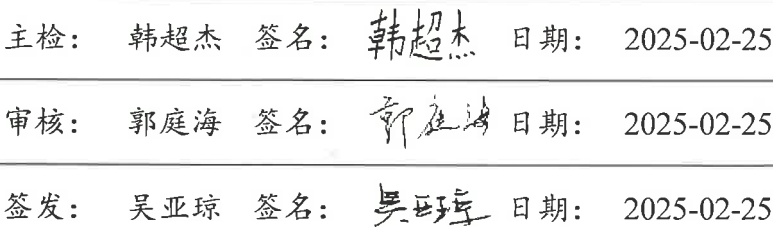 主检： 韩超杰 签名： 韩超杰 日期： 2025-02-25
审核： 郭庭海 签名： 郭庭海 日期： 2025-02-25
签发： 吴亚琼 签名： 吴亚琼 日期： 2025-02-25